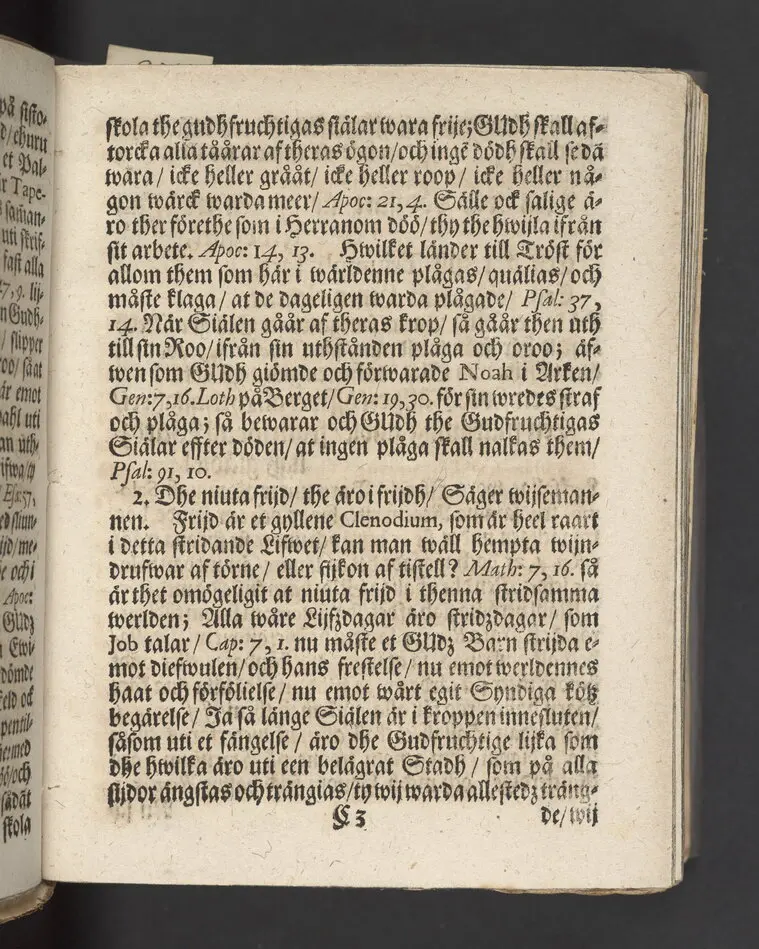 skola the gudhfruchtigas siälar wara frije; GUDh skall af-
torcka alla tåårar af theras ögon/ och ingẽ dödh skall se dã
wara/ icke heller grååt/ icke heller roop/ icke heller nå-
gon wärck warda meer/ Apoc: 21, 4. Sälle ock salige ä-
ro ther före the som i Herranom döö/ thy the hwijla ifrån
sit arbete. Apoc: 14, 13. Hwilket länder till Tröst för
allom them som här i wärldenne plågas/ quälias/ och
måste klaga/ at de dageligen warda plågade/ Psal: 37,
14. När Siälen gåår af theras krop/ så gåår then uth
till sin Roo/ ifrån sin uthstånden plåga och oroo; äf-
wen som GUDh giömde och förwarade Noah i Arken/
Gen: 7, 16. Loth på Berget/ Gen: 19, 30. för sin wredes straf
och plåga; så bewarar och GUDh the Gudfruchtigas
Siälar effter döden/ at ingen plåga skall nalkas them/
Psal: 91, 10.
2. Dhe niuta frijd/ the äro i frijdh/ Säger wijseman-
nen. Frijd är et gyllene Clenodium, som är heel raart
i detta stridande Lifwet/ kan man wäll hempta wijn-
drufwar af törne/ eller fijkon af tistell? Math: 7, 16. så
är thet omögeligit at niuta frijd i thenna stridsamma
werlden; Alla wåre Lijfzdagar äro stridzdagar/ som
Job talar/ Cap: 7, 1. nu måste et GUDz Barn strijda e-
mot diefwulen/ och hans frestelse/ nu emot werldennes
haat och förfölielse/ nu emot wårt egit Syndiga kötz
begärelse/ Ja så länge Siälen är i kroppen innesluten/
såsom uti et fängelse/ äro dhe Gudfruchtige lijka som
dhe hwilka äro uti een belägrat Stadh/ som på alla
sijdor ängstas och trängias/ ty wij warda allestedz träng-
C 3 de/ wij